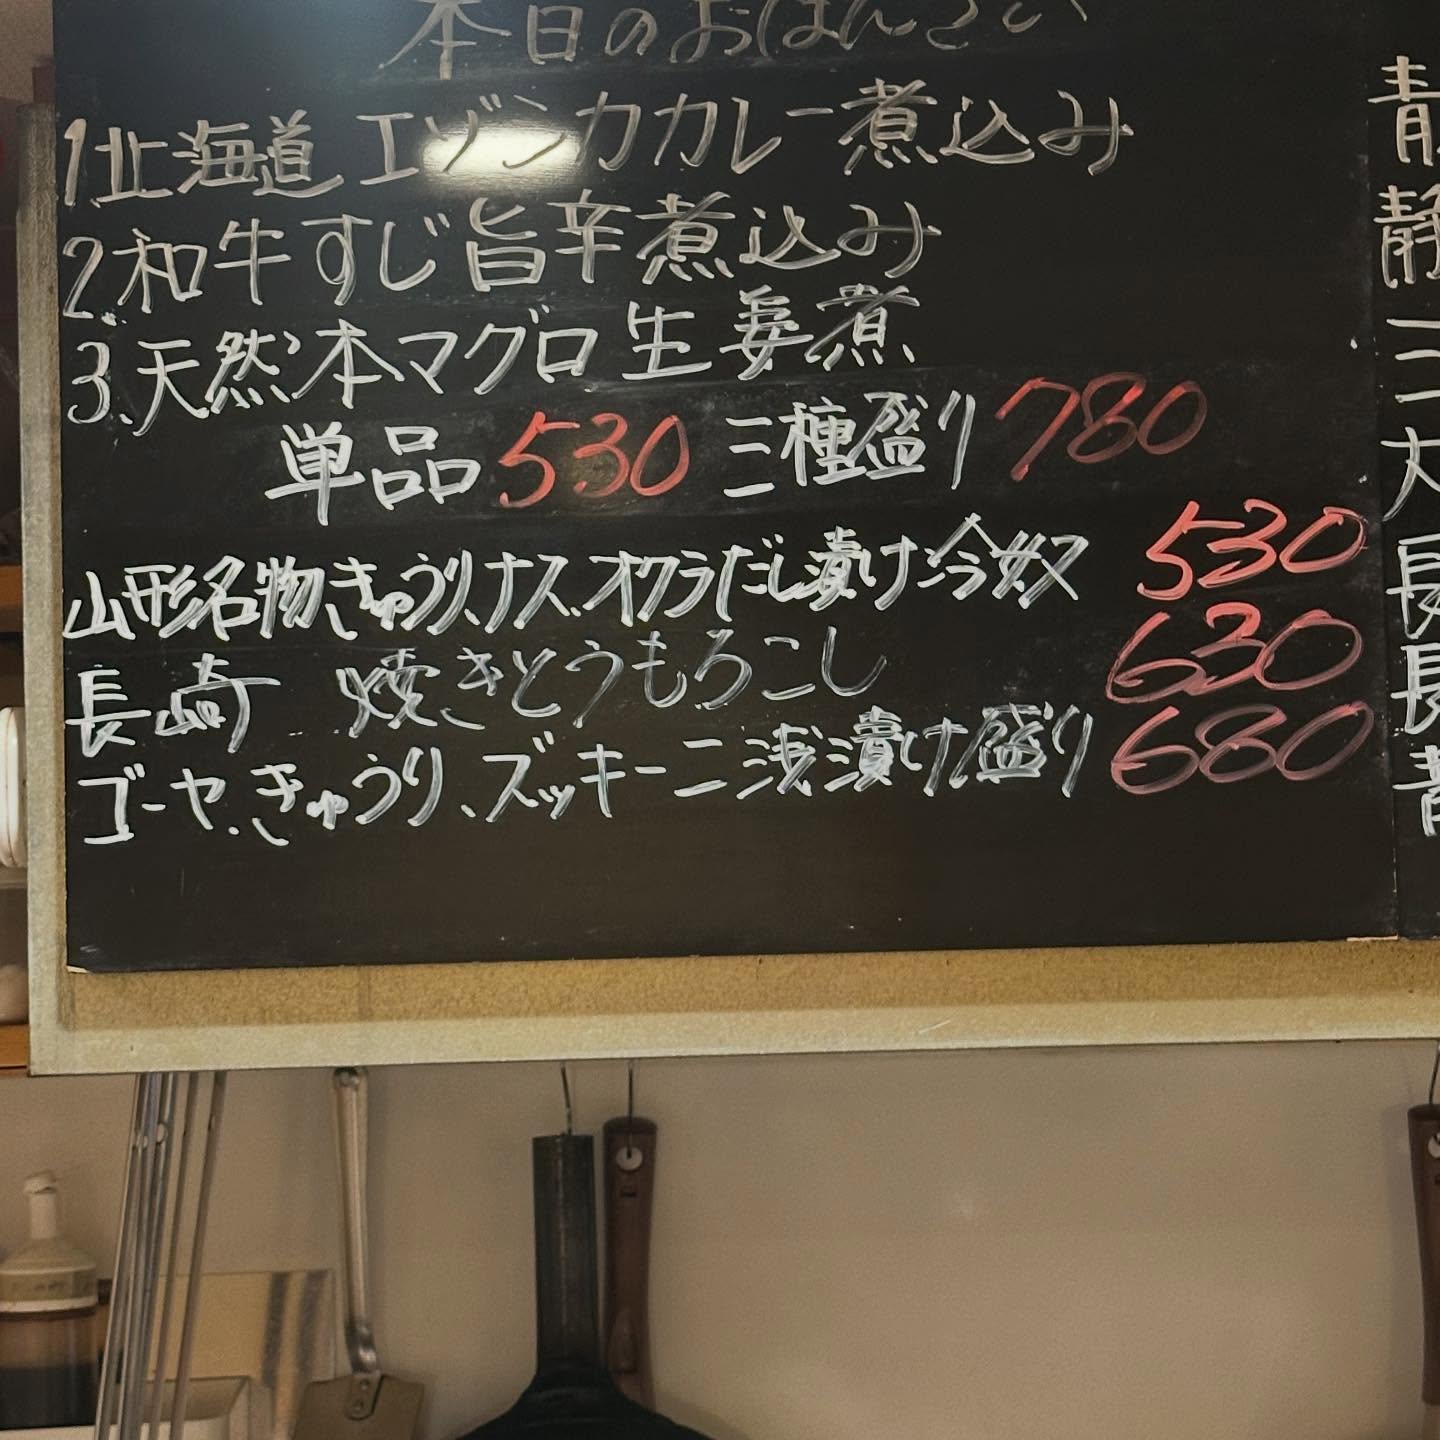 本日のおばんざい
1北海道 エゾシカカレー煮込み
2.和牛すじ旨辛煮込み
3、天然本マグロ生姜煮
単品530 三種盛り780
山形名物、きゅうり、ナス、オクラだし漬け冷奴 530
長崎 焼きとうもろこし 630
ゴーヤ、きゅうり、ズッキーニ浅漬け盛り 680
青
静
三
大
長
長
青